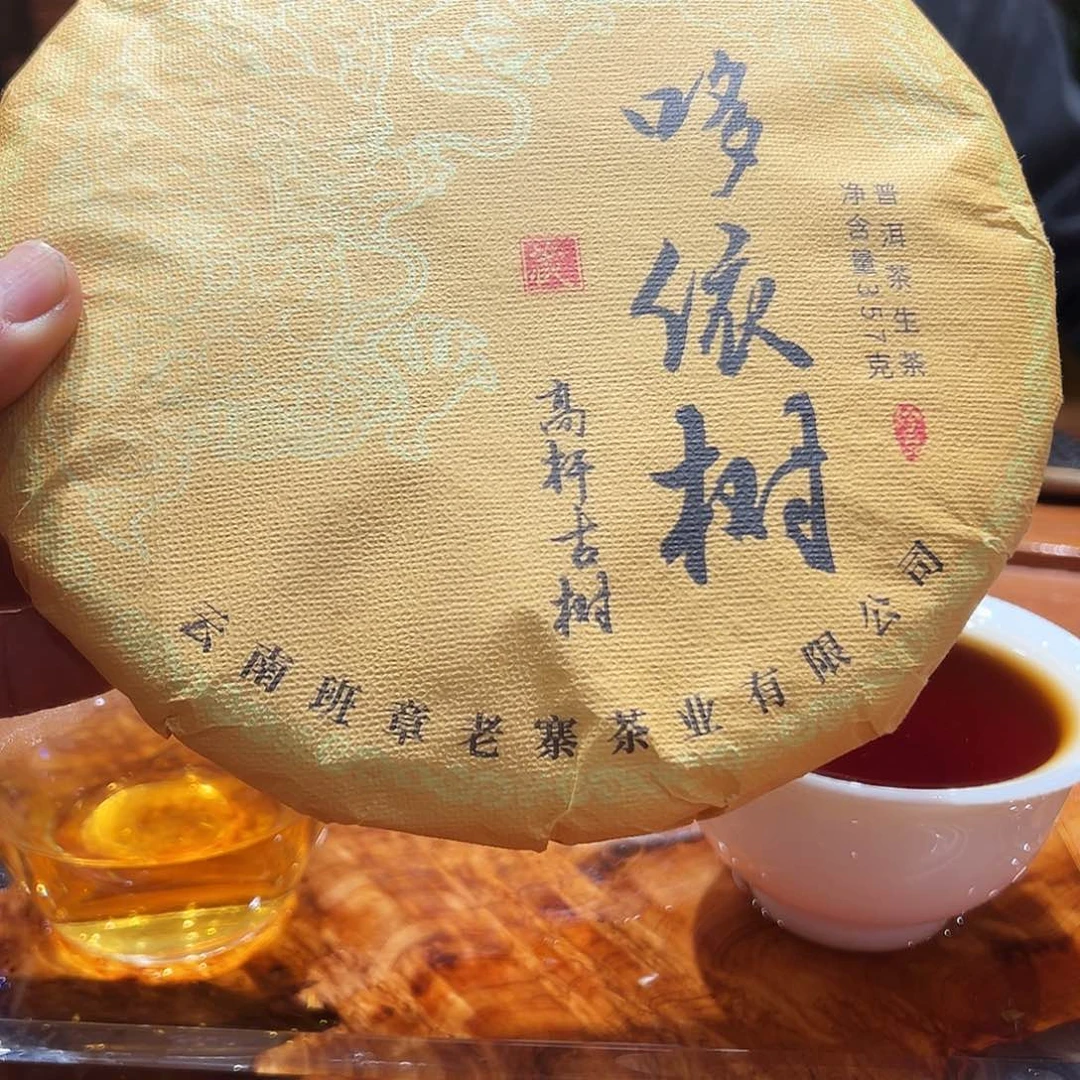 哆依树
普洱茶生茶
净含量357克
高杆古树
云南班章老寨茶业有限公司